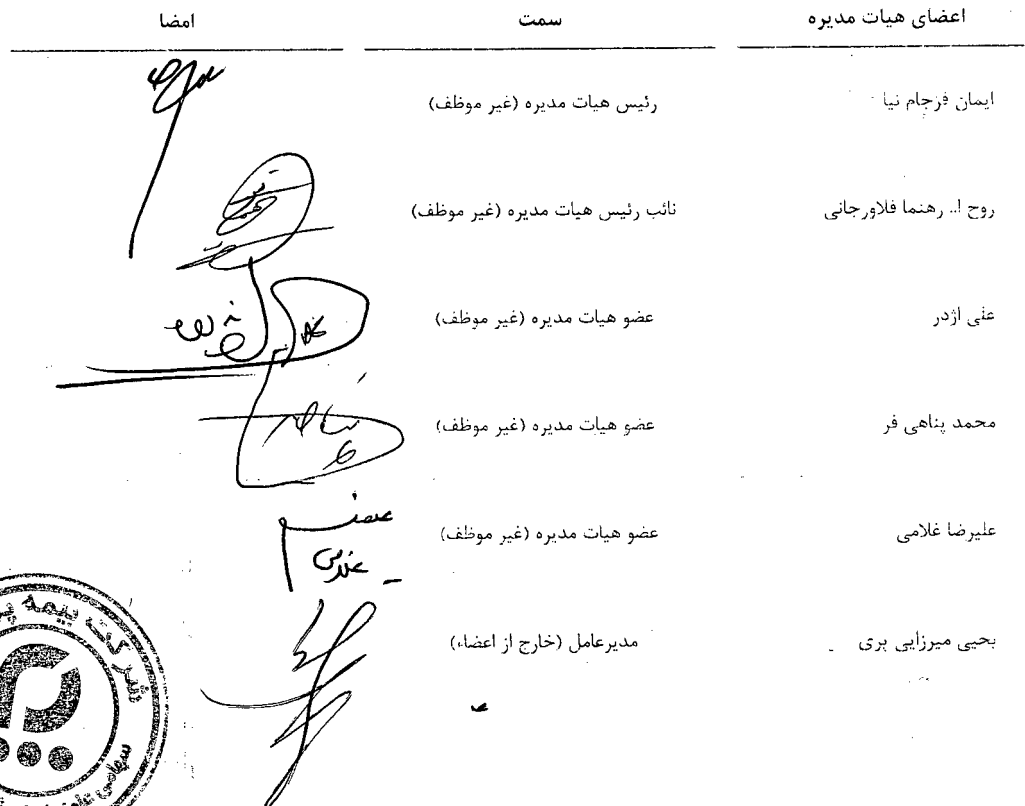 اعضای هیات مدیره سمت امضا
ایمان فرجام نیا رئیس هیات مدیره (غیر موظف)
روح ا.. رهنما فلاورجانی نائب رئیس هیات مدیره (غیر موظف)
علی اژدر عضو هیات مدیره (غیر موظف)
محمد پناهی فر عضو هیات مدیره (غیر موظف)
علیرضا غلامی عضو هیات مدیره (غیر موظف)
یحیی میرزایی بری مدیرعامل (خارج از اعضاء)
شرکت بیمه
سهامی